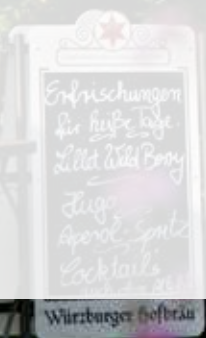 Erfrischungen
für heiße Tage.
Lillet Wild Berry
Hugo
Aperol-Spritz
Cocktails
Würzburger Hofbräu